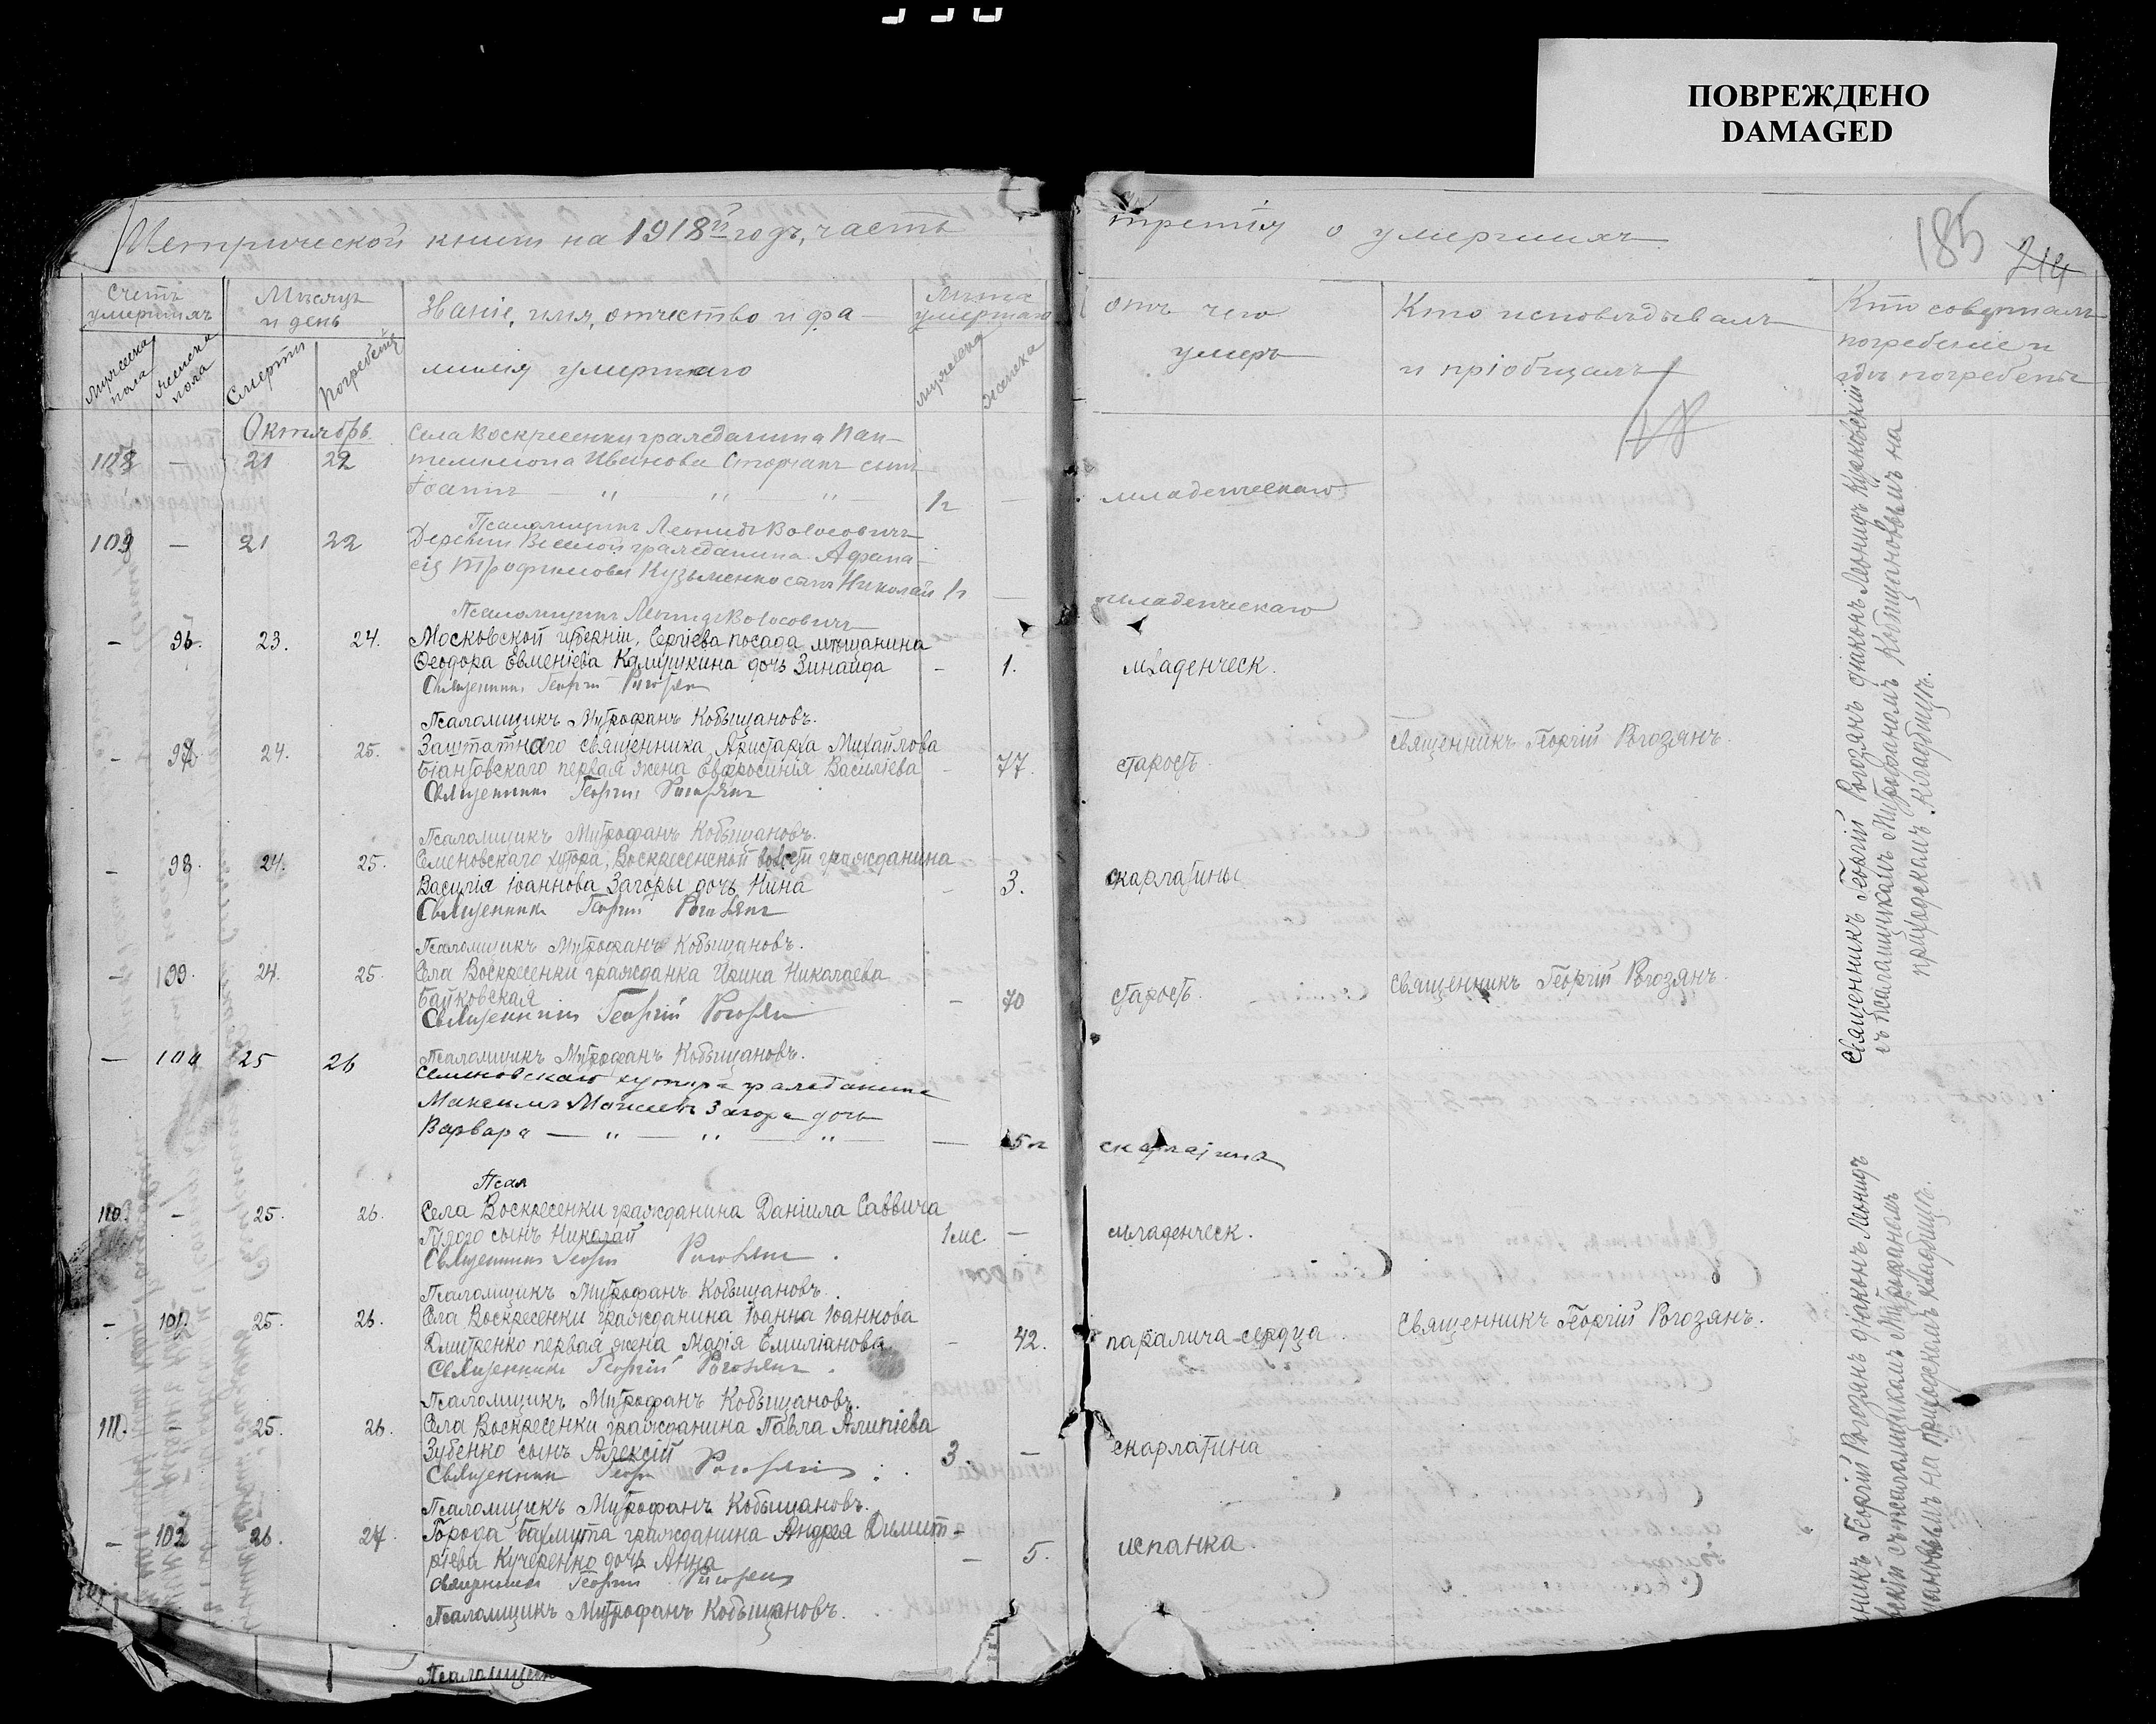 ПОВРЕЖДЕНО
DAMAGED
Метрической книги на 1918й годъ, часть
третія о умершихъ.
185
214
Счетъ умершихъ
Мужеска пола
женска пола
Мѣсяцъ и день
Смерти
Погребенія
Званіе, имя, отчество и фа-
милія умершаго
Лѣта умершаго
мужеска
женска
отъ чего
умеръ
Кто исповѣдывалъ
и пріобщалъ
Кто совершалъ
погребеніе и
гдѣ погребены
Октябрь
Села Воскресенки гражданина Пан-
108 — 21 22 телимона Иванова сынъ
Іоаннъ — " " — " — 1г — младенческаго
Псаломщикъ Леонидъ Волосовичъ
109 — 21 22 Деревни Веселой гражданина Афана-
сія Трофимова Кузьменко сынъ Николай 1г — младенческаго
Псаломщикъ Леонидъ Волосовичъ
- 96. 23. 24. Московской губерніи, Сергіева посада мѣщанина
Ѳеодора Евменіева дочь Зинаида - 1. младенческ.
Священникъ Георгій Рогозянъ
Псаломщикъ Митрофанъ Кобыщановъ.
- 97. 24. 25. Заштатнаго священника Аристарха Михайлова
первая жена Евфросинія Василіева - 77. старость. Священникъ Георгій Рогозянъ.
Священникъ Георгій Рогозянъ
Псаломщикъ Митрофанъ Кобыщановъ.
- 98. 24. 25. Семеновскаго хутора, Воскресенской волости гражданина
Василія Іоаннова Загоры дочь Нина - 3. скарлатины
Священникъ Георгій Рогозянъ
Псаломщикъ Митрофанъ Кобыщановъ.
- 99. 24. 25. Села Воскресенки гражданка Ирина Николаева
Байковская - 70 старость. Священникъ Георгій Рогозянъ.
Священникъ Георгій Рогозянъ
Псаломщикъ Митрофанъ Кобыщановъ.
— 100 25 26 Семеновскаго хутора гражданина
Максима Загора дочь
Варвара — " — " — " — — 5л скарлатина
Псал
110. - 25. 26. Села Воскресенки гражданина Даніила Саввича
Гузого сынъ Николай 1мс. — младенческ.
Священникъ Георгій Рогозянъ.
Псаломщикъ Митрофанъ Кобыщановъ.
- 101. 25. 26. Села Воскресенки гражданина Іоанна Іоанкова
Дмитренко первая жена Марія Емиліанова - 42. паралича сердца. Священникъ Георгій Рогозянъ.
Священникъ Георгій Рогозянъ.
Псаломщикъ Митрофанъ Кобыщановъ.
111. 25. 26. Села Воскресенки гражданина Павла Алипіева
Зубенко сынъ Алексій 3. — скарлатина
Священникъ Георгій Рогозянъ.
Псаломщикъ Митрофанъ Кобыщановъ.
- 102 26. 27. Города Бахмута гражданина Андрея Димит-
ріева Кучеренко дочь Анна — 5. испанка.
Священникъ Георгій Рогозянъ
Псаломщикъ Митрофанъ Кобыщановъ.
Псаломщик
Священникъ Георгій Рогозянъ діаконъ Леонидъ Курковскій
съ псаломщикомъ Митрофаномъ Кобыщановымъ на
приходскомъ кладбищѣ.
никъ Георгій Рогозянъ діаконъ Леонидъ
вскій съ псаломщикомъ Митрофаномъ
щановымъ на приходскомъ кладбищѣ.